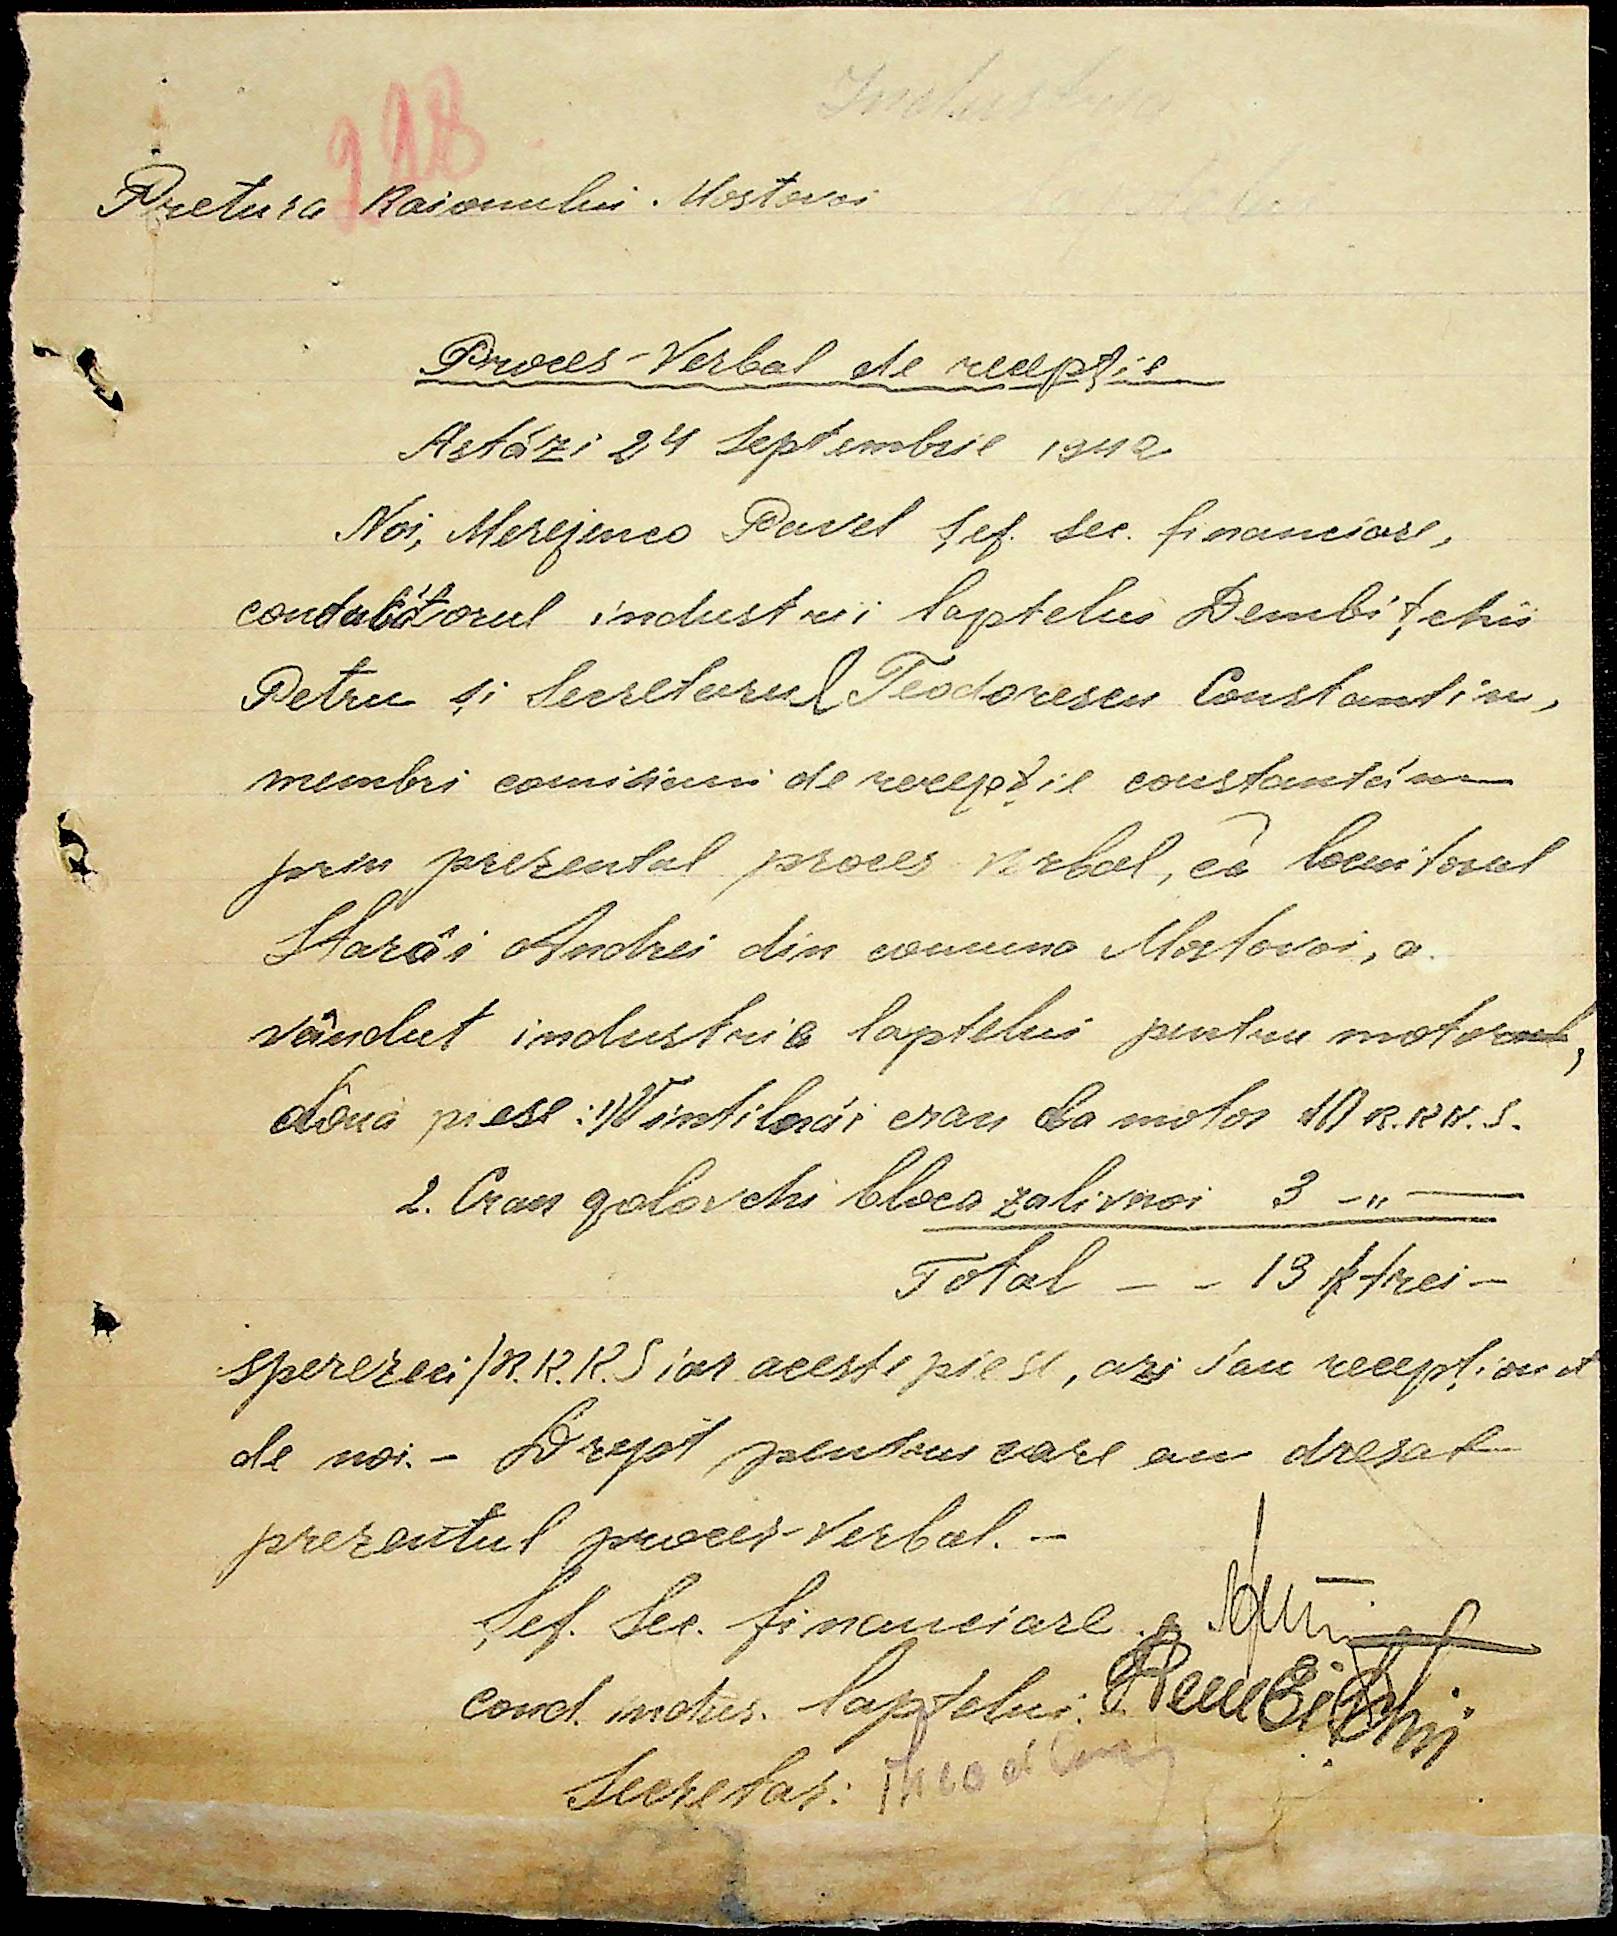 Industria
228
Pretura Raionului. Mostovoi
Proces-Verbal de recepție
Astăzi 24 Septembrie 1942
Noi, Merejenco Pavel Șef. Sec. financiare,
conducătorul industrii laptelui Dembițchii
Petru și Secretarul Teodorescu Constantin,
membri comisiuni de recepție constantăm
prin prezentul proces verbal, că locuitorul
Starâi Andrei din comuna Mostovoi, a
vândut industria laptelui pentru motorul,
două piese: 1) Vintilnâi cran la motor 10 R.K.K.S.
2. Cran golovchi bloca zalivnoi 3 -"-
Total - - 13 /trei-
sperezeci/ R.K.K.S iar aceste piese, azi s'au recepționat
de noi. - Drept pentru care am dresat
prezentul proces-verbal. -
Șef. Sec. financiare
cond. indus. laptelui. Dembițchii
Secretar: